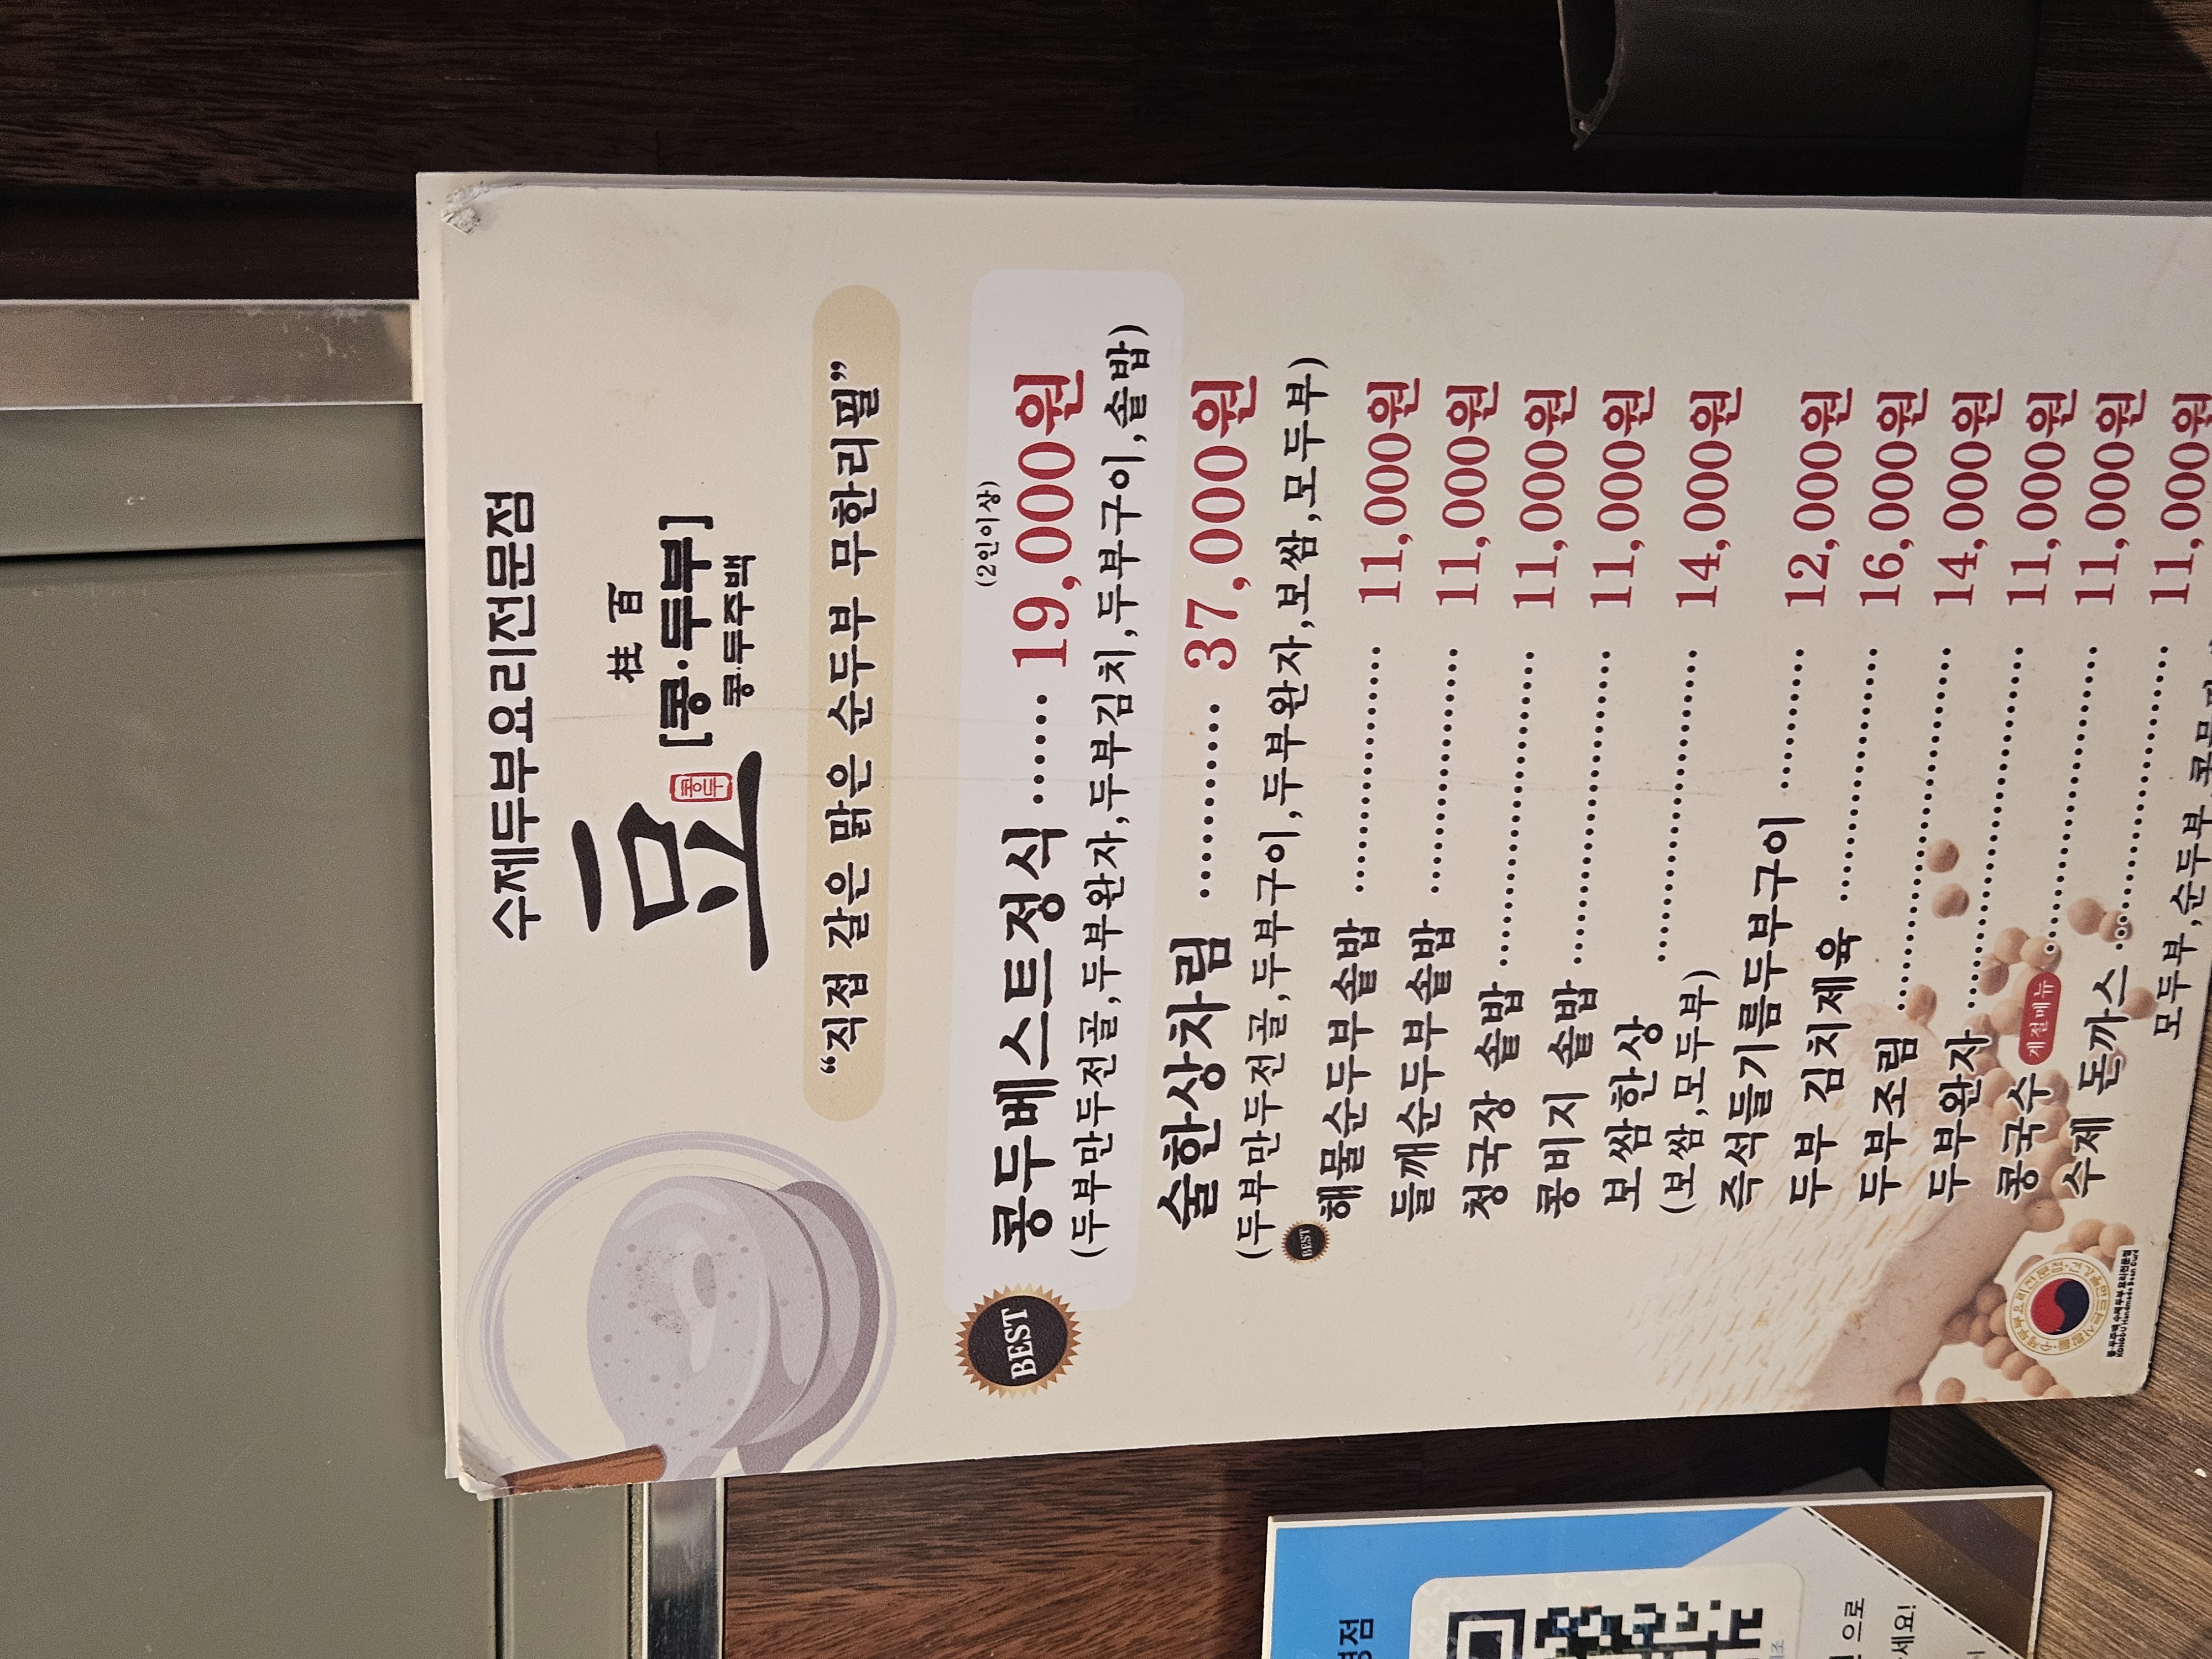 수제두부요리전문점
豆
콩두
柱 百
[콩·두부]
콩·두주백
“직접 갈은 맑은 순두부 무한리필”
BEST
(2인이상)
콩두베스트정식 ······ 19,000원
(두부만두전골,두부완자,두부김치,두부구이,솥밥)
술한상차림 ·········· 37,000원
(두부만두전골,두부구이,두부완자,보쌈,모두부)
BEST
해물순두부솥밥 ·················· 11,000원
들깨순두부솥밥 ·················· 11,000원
청국장 솥밥 ······················· 11,000원
콩비지 솥밥 ······················· 11,000원
보쌈한상 ······················· 14,000원
(보쌈,모두부)
즉석들기름두부구이 ··········· 12,000원
두부 김치제육 ·················· 16,000원
두부조림 ·························· 14,000원
두부완자 ·························· 11,000원
콩국수 계절메뉴 ······················ 11,000원
수제 돈까스 ······················ 11,000원
모두부,순두부,
콩·두주백 수제두부 요리전문점
영점
으로
세요!